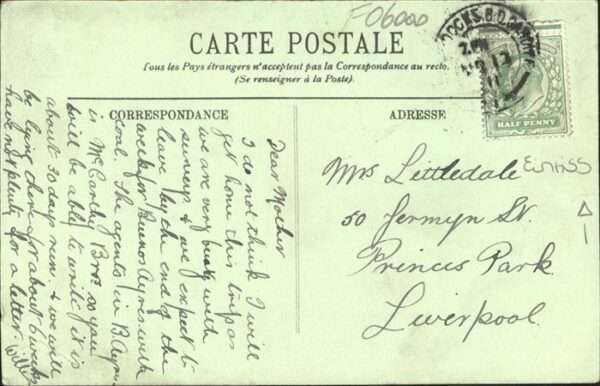 F06000
CARTE POSTALE
Tous les Pays étrangers n'acceptent pas la Correspondance au recto.
(Se renseigner à la Poste).
CORRESPONDANCE
ADRESSE
HALF PENNY
Dear Mother
I do not think I will
get home this time as
we are very busy with
& we expect to
leave by the end of the
week for Buenos Ayres with
coal. The agents in B. Ayres
is McCarthy Bros so you
will be able to write it is
about 30 days run, & we will
be lying there for about 6 weeks
have not plenty for a letter. Willie
Mrs Littledale
50 Jermyn St.
Princes Park
Liverpool.